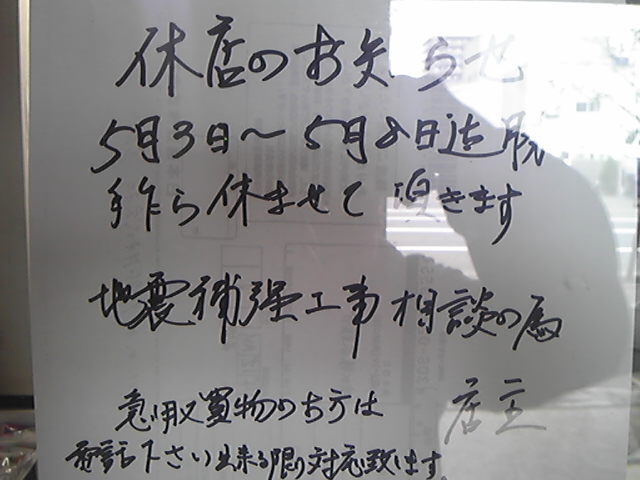 休店のお知らせ
5月3日～5月8日迄勝
手乍ら休ませて頂きます
地震補強工事相談の為
店主
急用又買物の方は
電話下さい出来る限り対応致します。